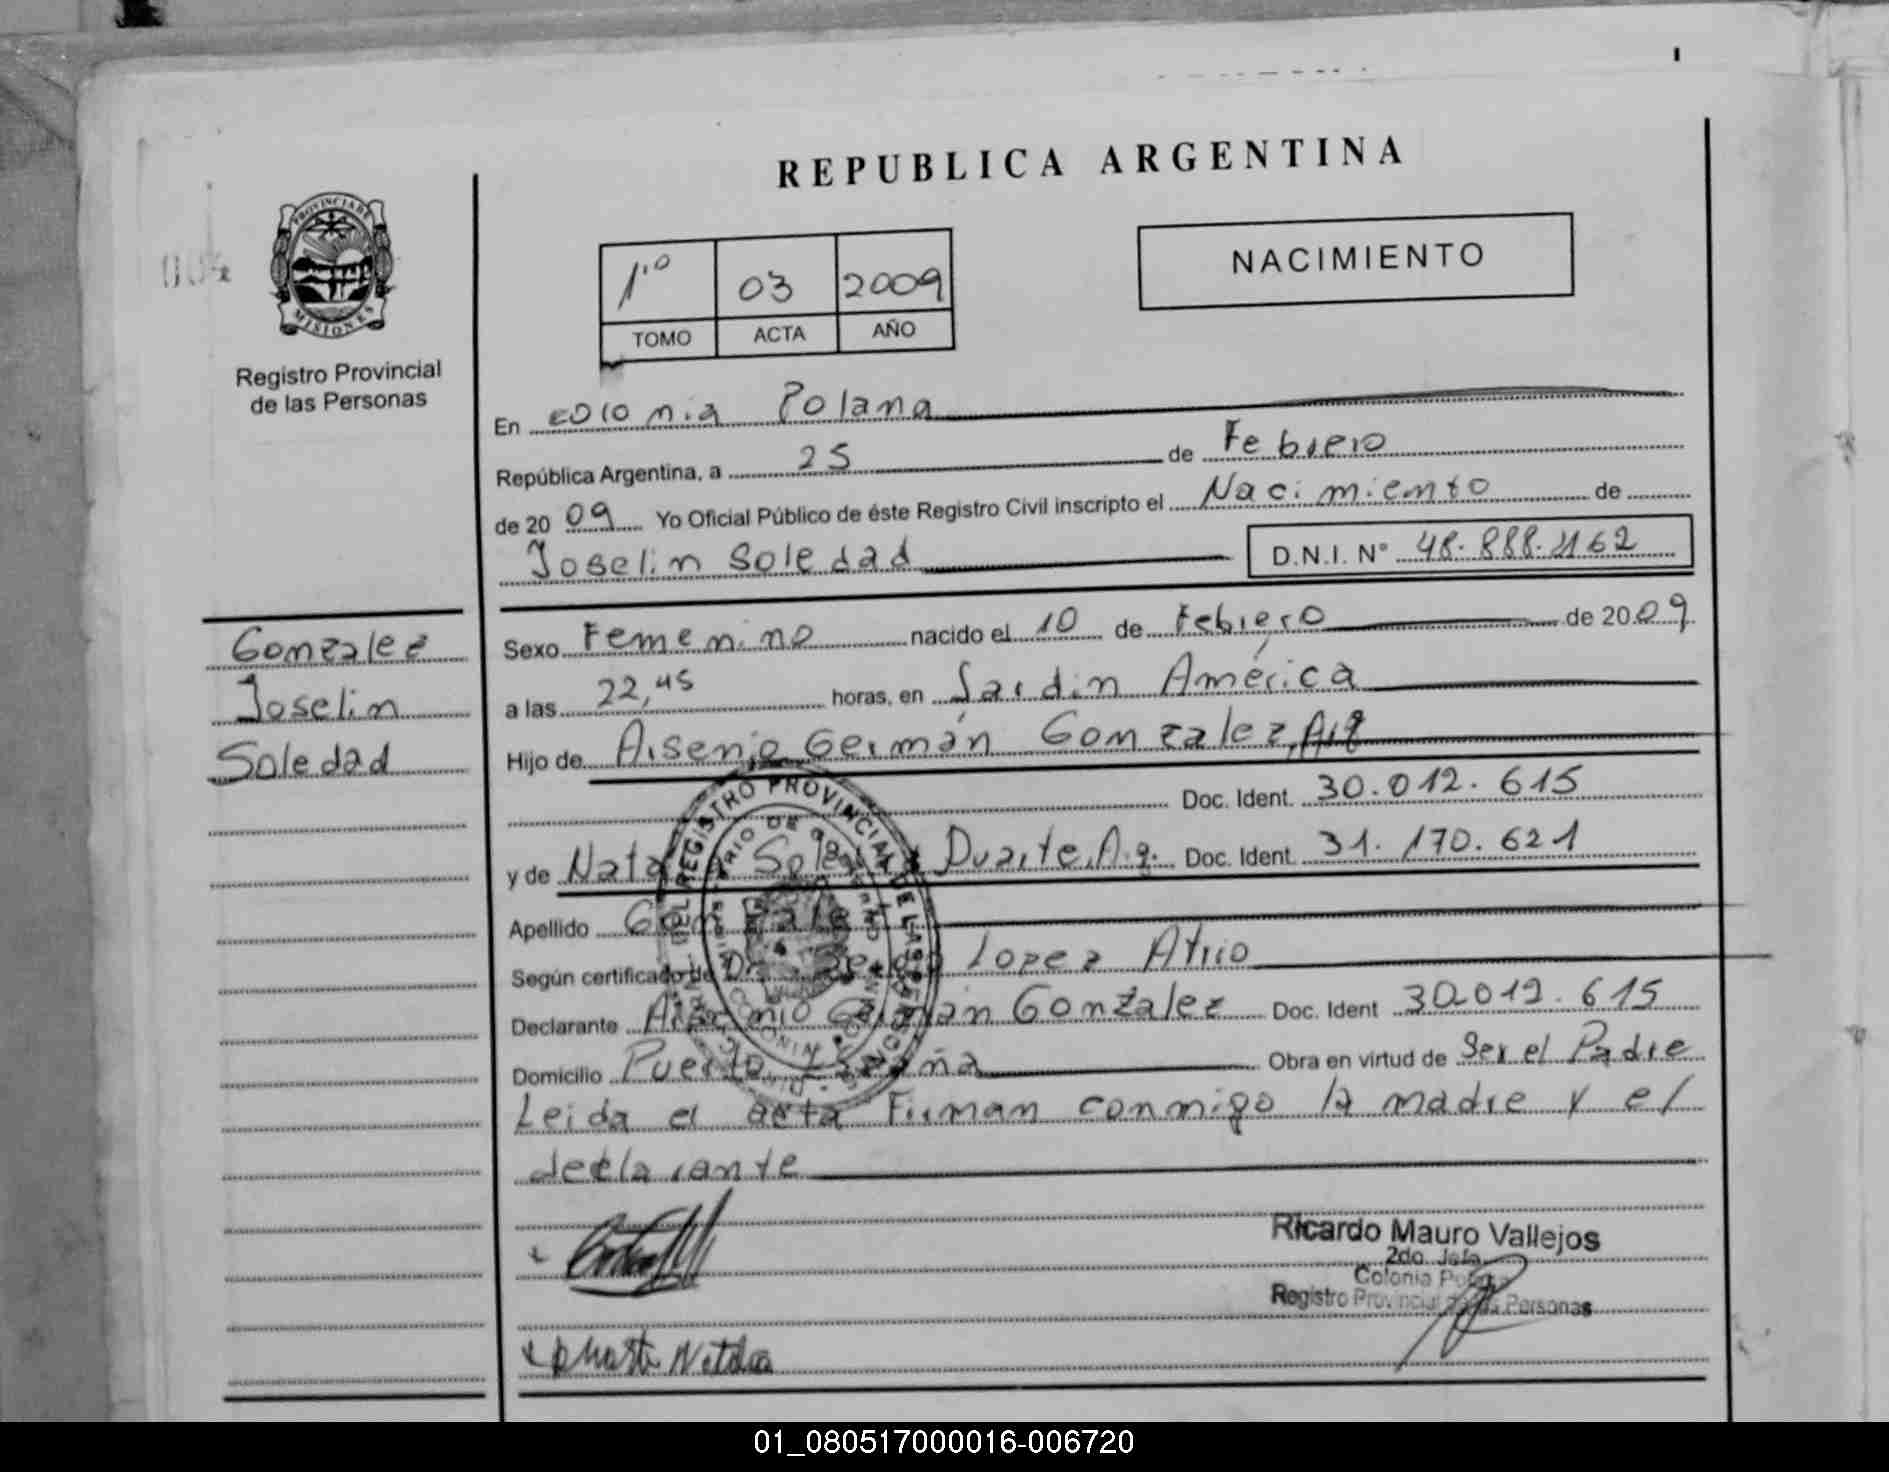 REPUBLICA ARGENTINA
PROVINCIA DE
MISIONES
Registro Provincial
de las Personas
1º 03 2009
TOMO ACTA AÑO
NACIMIENTO
En colonia Polana
República Argentina, a 25 de Febrero
de 2009 Yo Oficial Público de éste Registro Civil inscripto el Nacimiento de
Joselin Soledad D.N.I. Nº 48.888.1162
Gonzalez
Joselin
Soledad
Sexo Femenino nacido el 10 de Febrero de 2009
a las 22,45 horas, en Jardin América
Hijo de Arsenio Germán Gonzalez, Arg
Doc. Ident. 30.012.615
y de Duarte, Arg. Doc. Ident. 31.170.621
Apellido
Según certificado de Lopez Atrio
Declarante Germán Gonzalez Doc. Ident 30.012.615
Domicilio Puerto Obra en virtud de Ser el Padre
Leida el acta Firman conmigo la madre y el
declarante
Ricardo Mauro Vallejos
2do. Jefe
Colonia
Registro Provincial de las Personas
Duarte
01_080517000016-006720